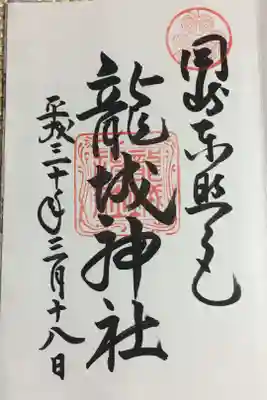 岡崎東照宮
龍城神社
平成三十年三月十八日